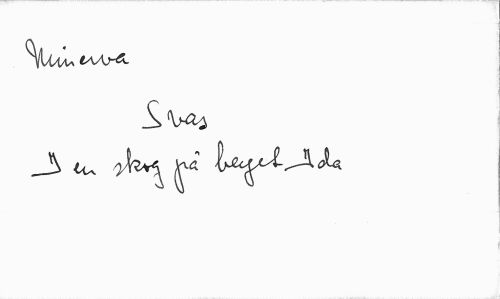 Minerva
Svas
I en skog på berget Ida